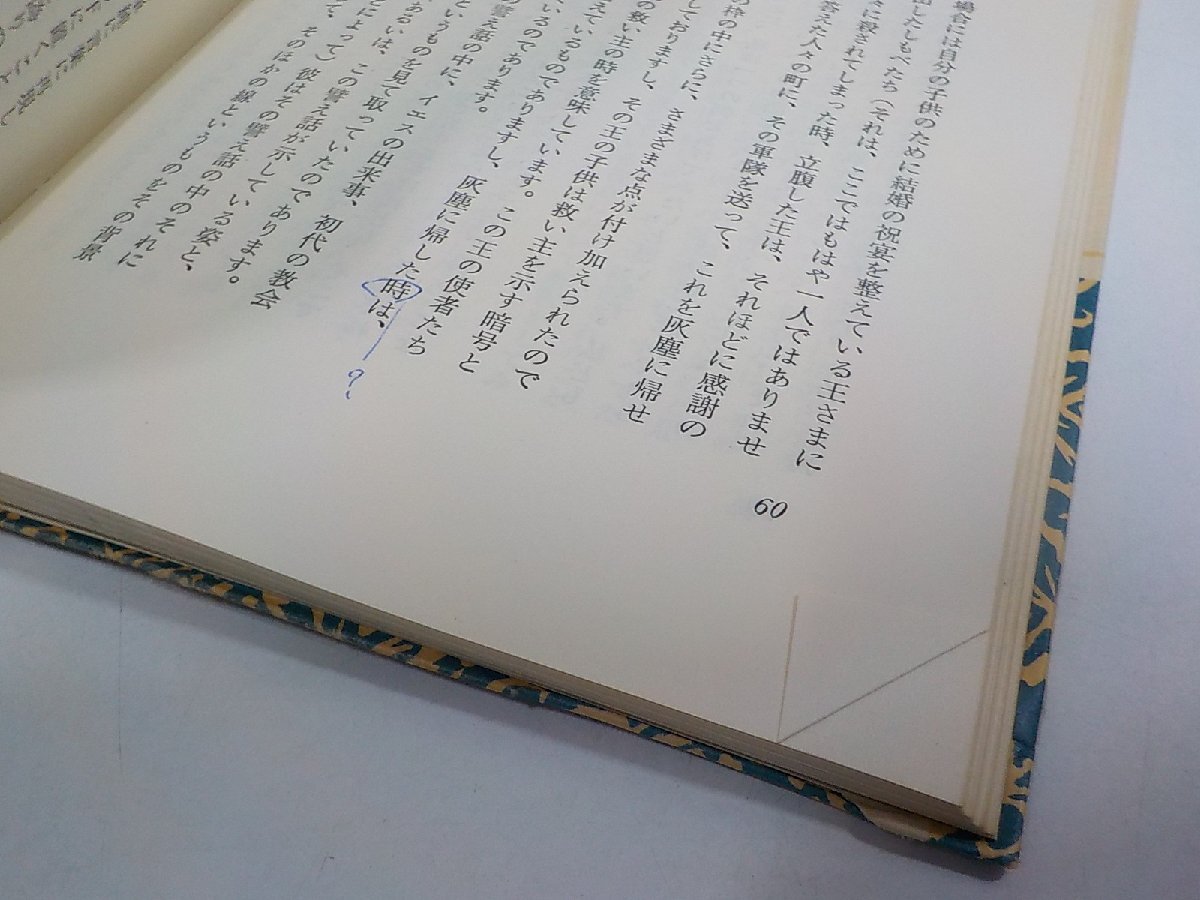 場合には自分の子供のために結婚の祝宴を整えている王さまに
出したしもべたち（それは、ここではもはや一人ではありませ
々に殺されてしまった時、立腹した王は、それほどに感謝の
答えた人々の町に、その軍隊を送って、これを灰塵に帰せ
の枠の中にさらに、さまざまな点が付け加えられたので
しておりますし、その王の子供は救い主を示す暗号と
の救い主の時を意味しています。この王の使者たち
えているものでありますし、灰塵に帰した時は、
いるのであります。
の譬え話の中に、イエスの出来事、初代の教会
というものを見て取っていたのであります。
あるいは、この譬え話が示している姿と、
とによって）彼はその譬え話の中のそれに
て、そのほかの線というものをその背景
?
60